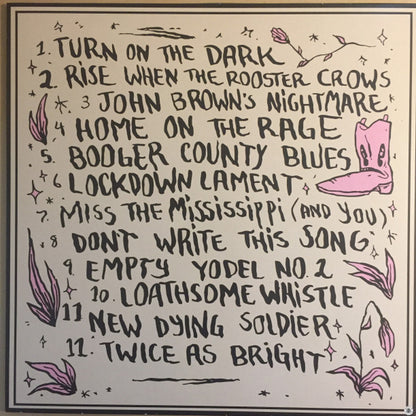 1. TURN ON THE DARK
2. RISE WHEN THE ROOSTER CROWS
3 JOHN BROWN'S NIGHTMARE
4 HOME ON THE RAGE
5. BOOGER COUNTY BLUES
6 LOCKDOWN LAMENT
7. MISS THE MISSISSIPPI (AND YOU)
8 DONT WRITE THIS SONG
9. EMPTY YODEL NO. 2
10. LOATHSOME WHISTLE
11 NEW DYING SOLDIER
12. TWICE AS BRIGHT